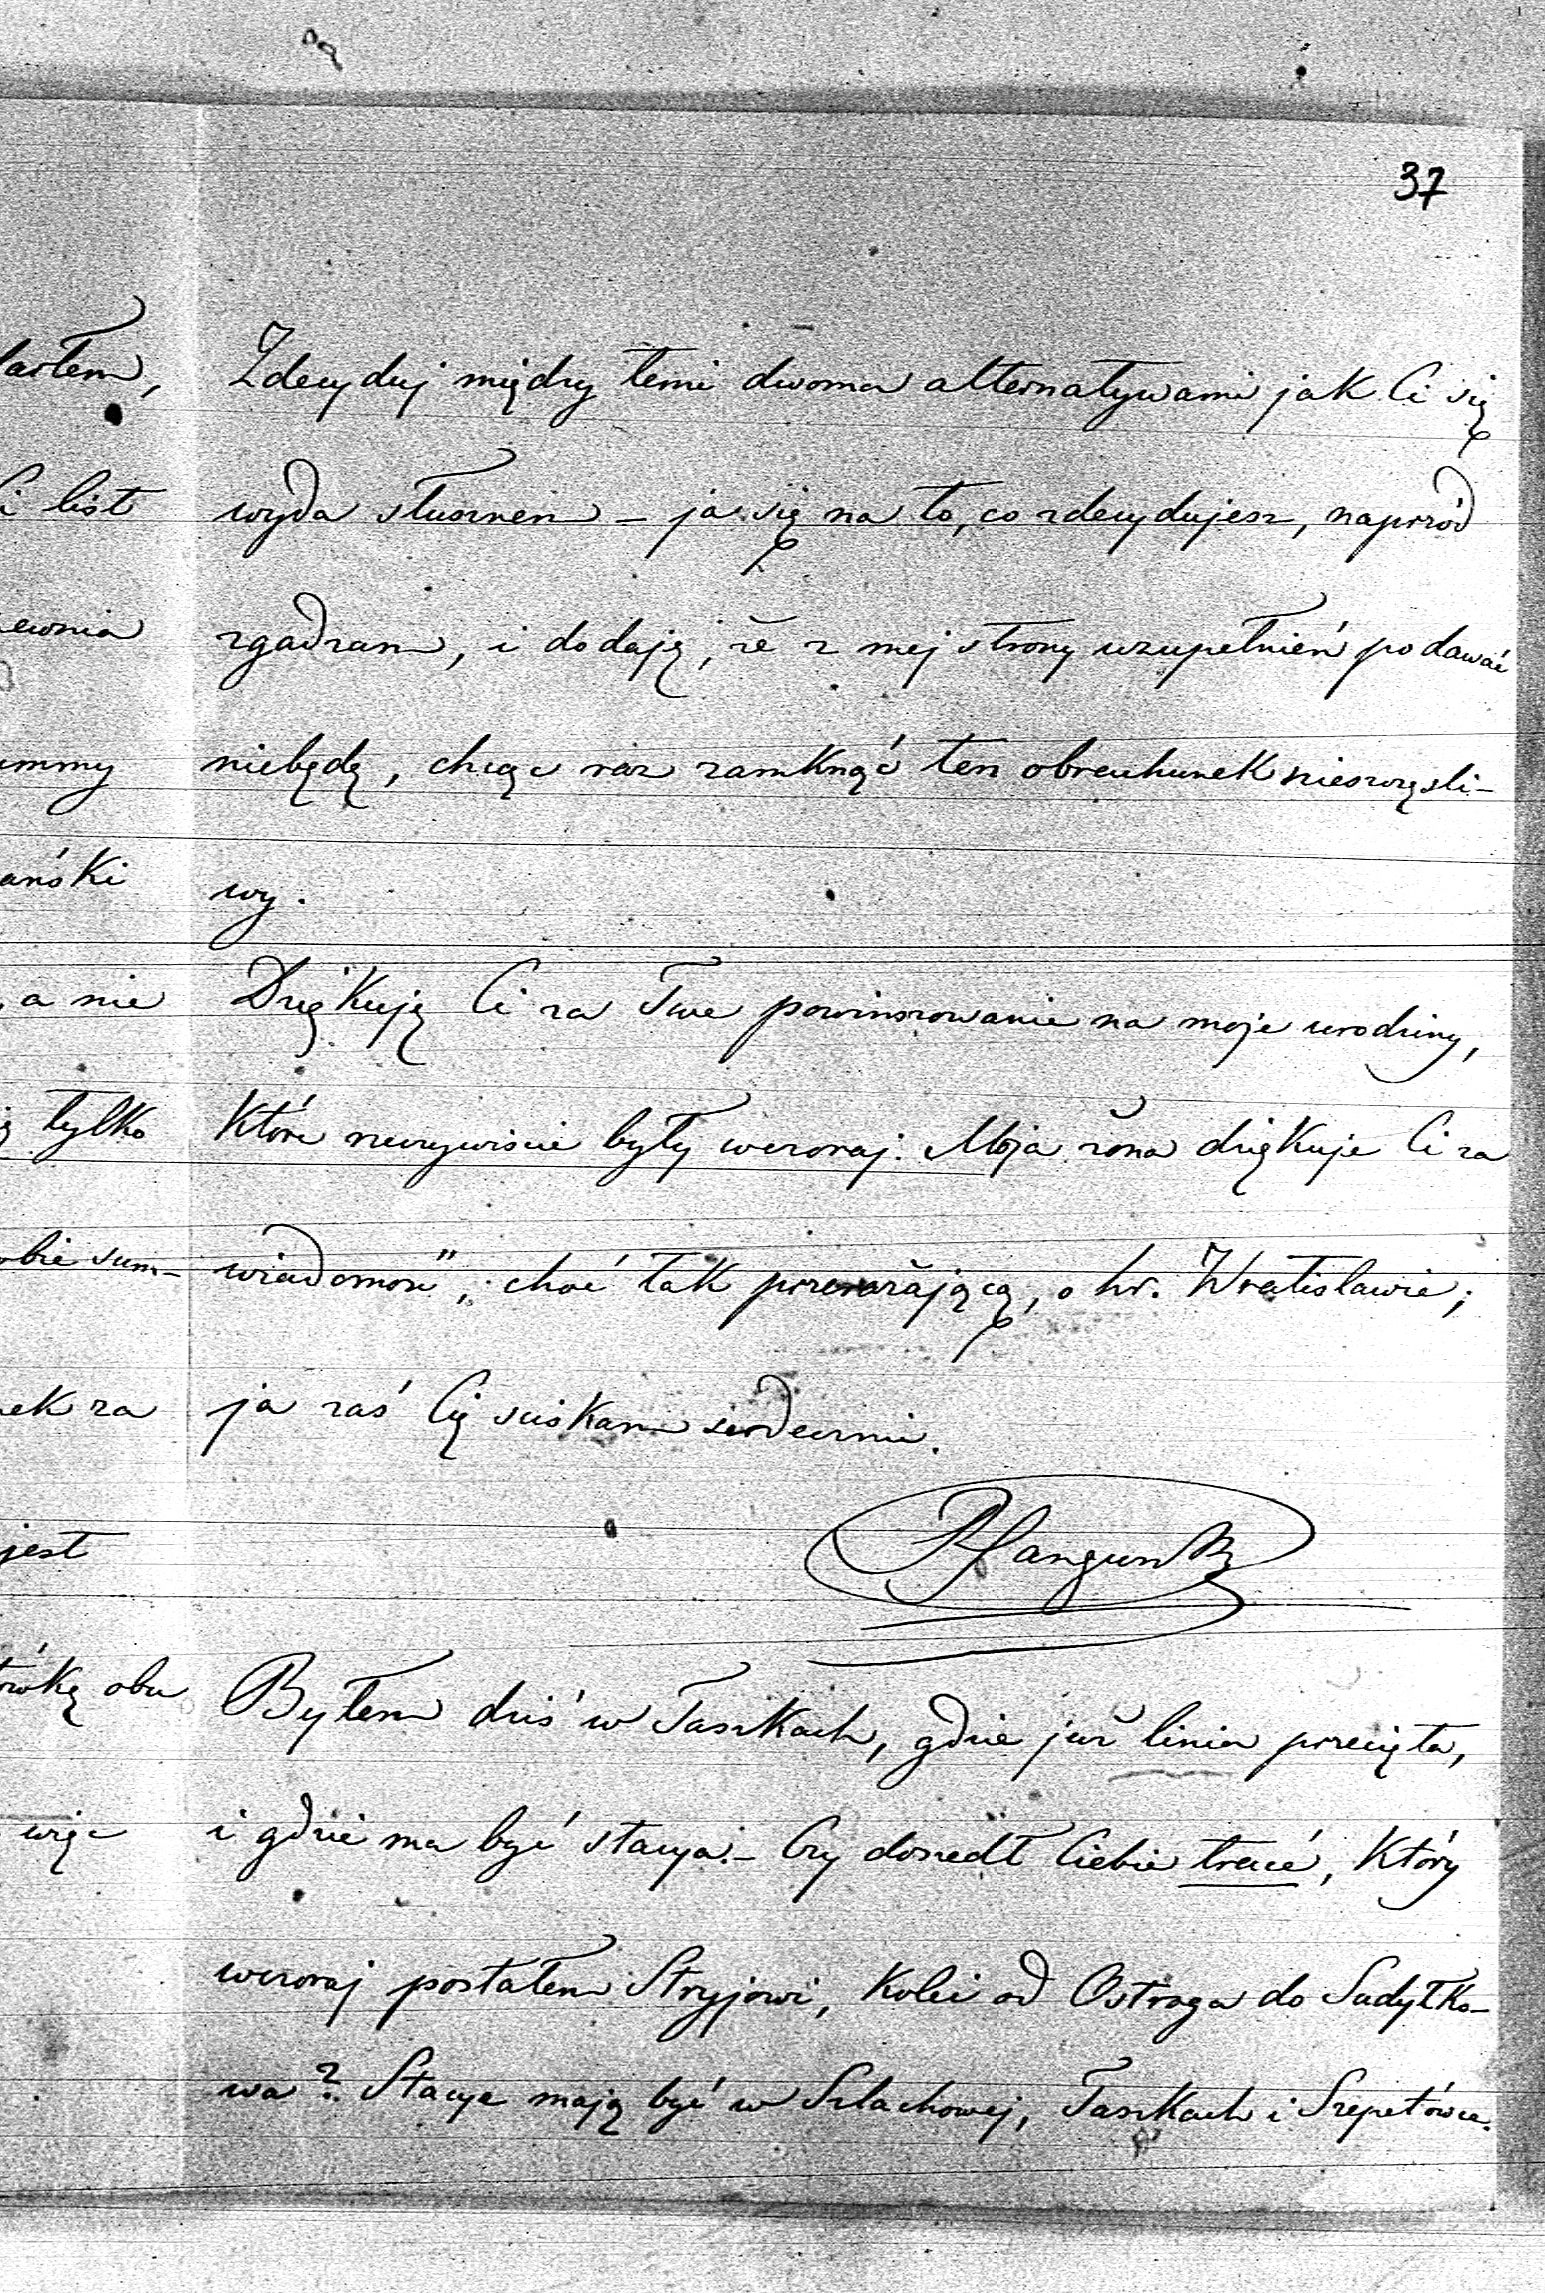 37
Zdecyduj między temi dwoma alternatywami jak Ci się
wyda słusznem – ja się na to, co zdecydujesz, naprzód
zgadzam, i dodaję, że z mej strony uzupełnień podawać
niebędę, chcąc raz zamknąć ten obrachunek nieszczęśli-
wy.
Dziękuję Ci za Twe powinszowanie na moje urodziny,
które rzeczywiście były wczoraj. Moja żona dziękuje Ci za
wiadomość, choć tak przerażającą, o hr. Wratislawie;
ja zaś Cię ściskam serdecznie.
RSanguszko
Byłem dziś w Taszkach, gdzie już linia przecięta,
i gdzie ma być stacya. – Czy doszedł Ciebie tracé, który
wczoraj posłałem Stryjowi, kolei od Ostroga do Sudyłko-
wa? Stacye mają być w Szlachowej, Taszkach i Szepetówce.
łasłem,
i list
ewnia
ummy
ański
, a nie
tylko
obie sum-
ek za
jest
ówkę obu
więc